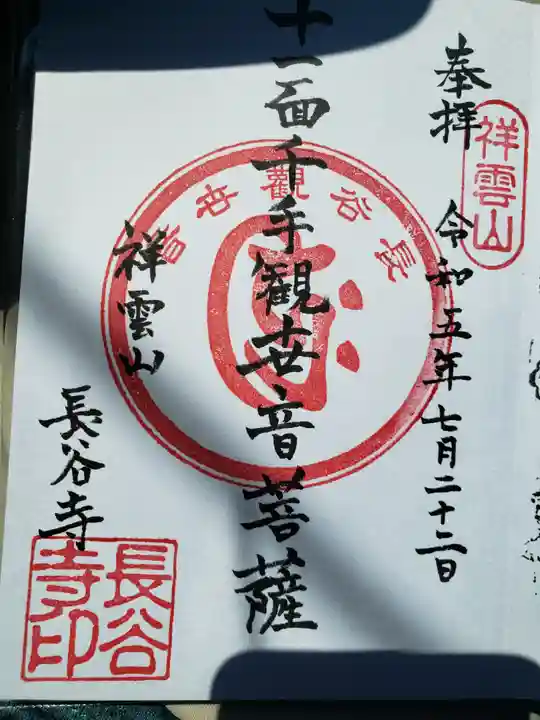 奉拝
祥雲山
令和五年七月二十二日
十一面千手観世音菩薩
長谷觀
祥雲山
長谷寺
長谷寺印